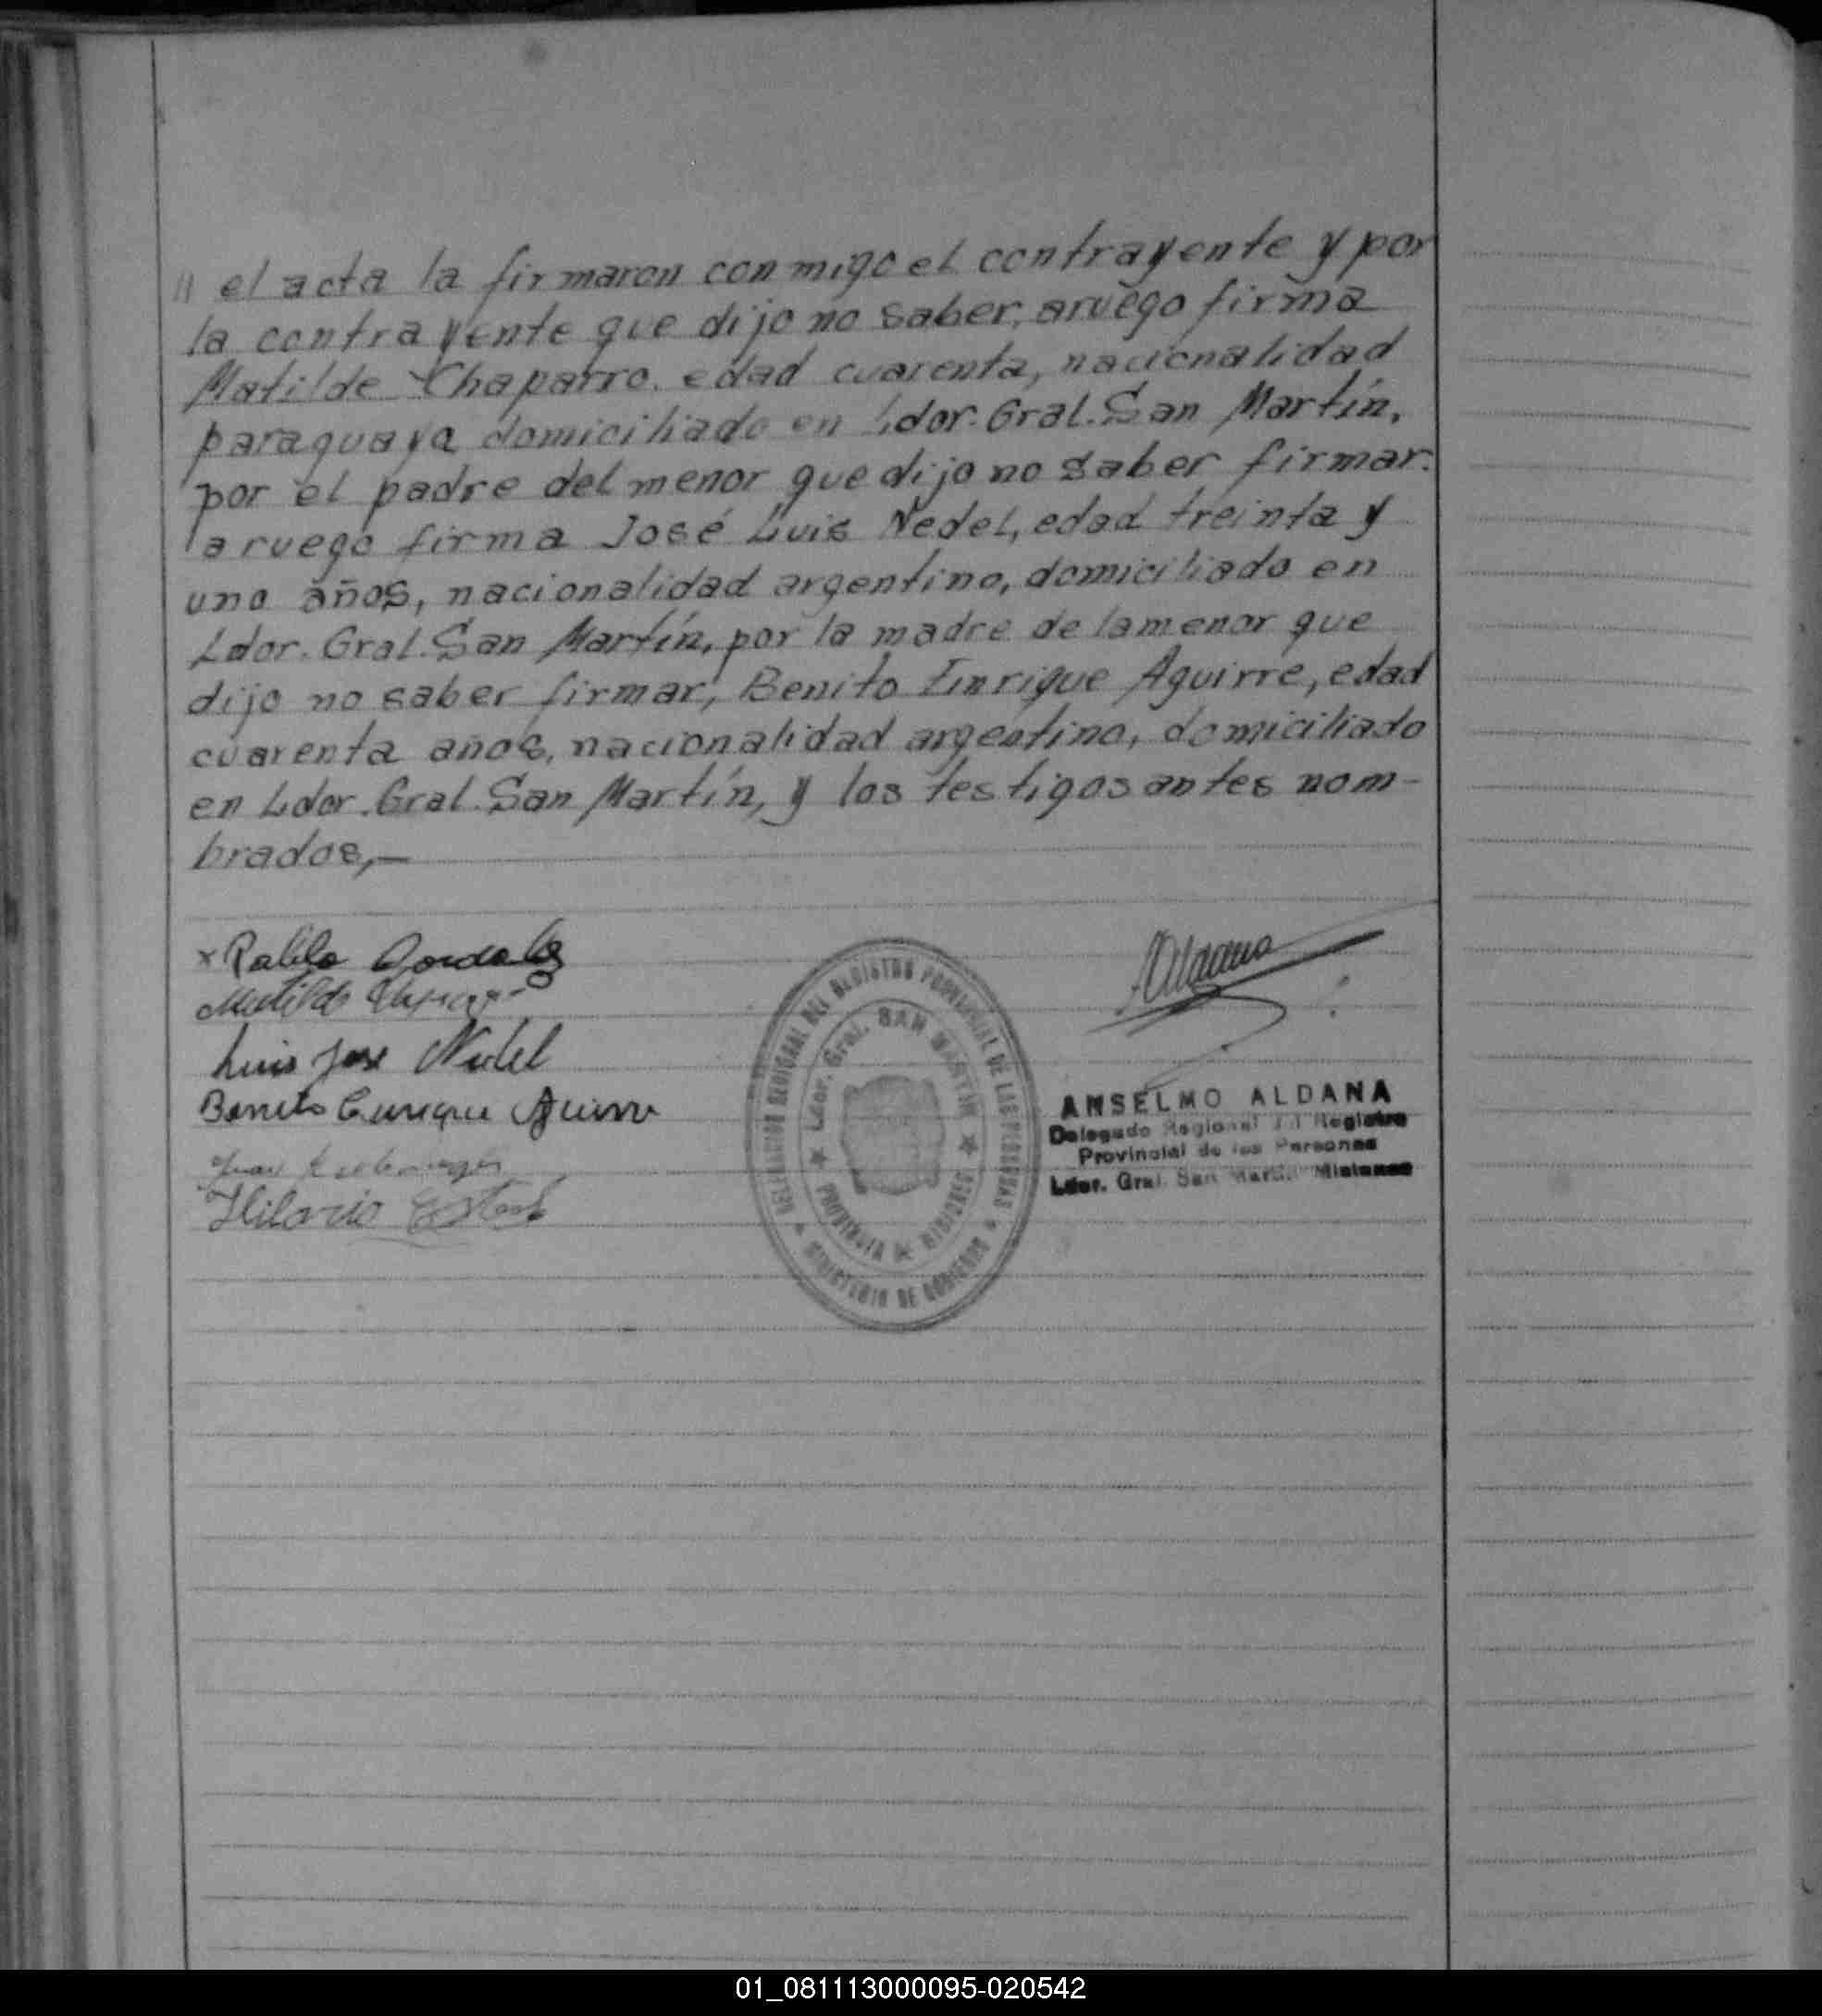 // el acta la firmaron conmigo el contrayente y por
la contrayente que dijo no saber, aruego firma
Matilde Chaparro. edad cuarenta, nacionalidad
paraguaya domiciliado en Ldor. Gral. San Martín,
por el padre del menor que dijo no saber firmar.
a ruego firma José Luis Nedel, edad treinta y
uno años, nacionalidad argentino, domiciliado en
Ldor. Gral. San Martín, por la madre de la menor que
dijo no saber firmar, Benito Enrique Aguirre, edad
cuarenta años, nacionalidad argentino, domiciliado
en Ldor. Gral. San Martín, y los testigos antes nom-
brados,—
x Pablo
Matilde
Luis Jose Nedel
Benito Enrique Aguirre
Hilario
DELEGACION REGIONAL DEL REGISTRO PROVINCIAL DE LAS PERSONAS
★ MINISTERIO DE GOBIERNO ★
★ Ldor. Gral. SAN MARTIN ★
PROVINCIA DE MISIONES
Aldana
ANSELMO ALDANA
Delegado Regional del Registro
Provincial de las Personas
Ldor. Gral. San Martín Misiones
01_081113000095-020542